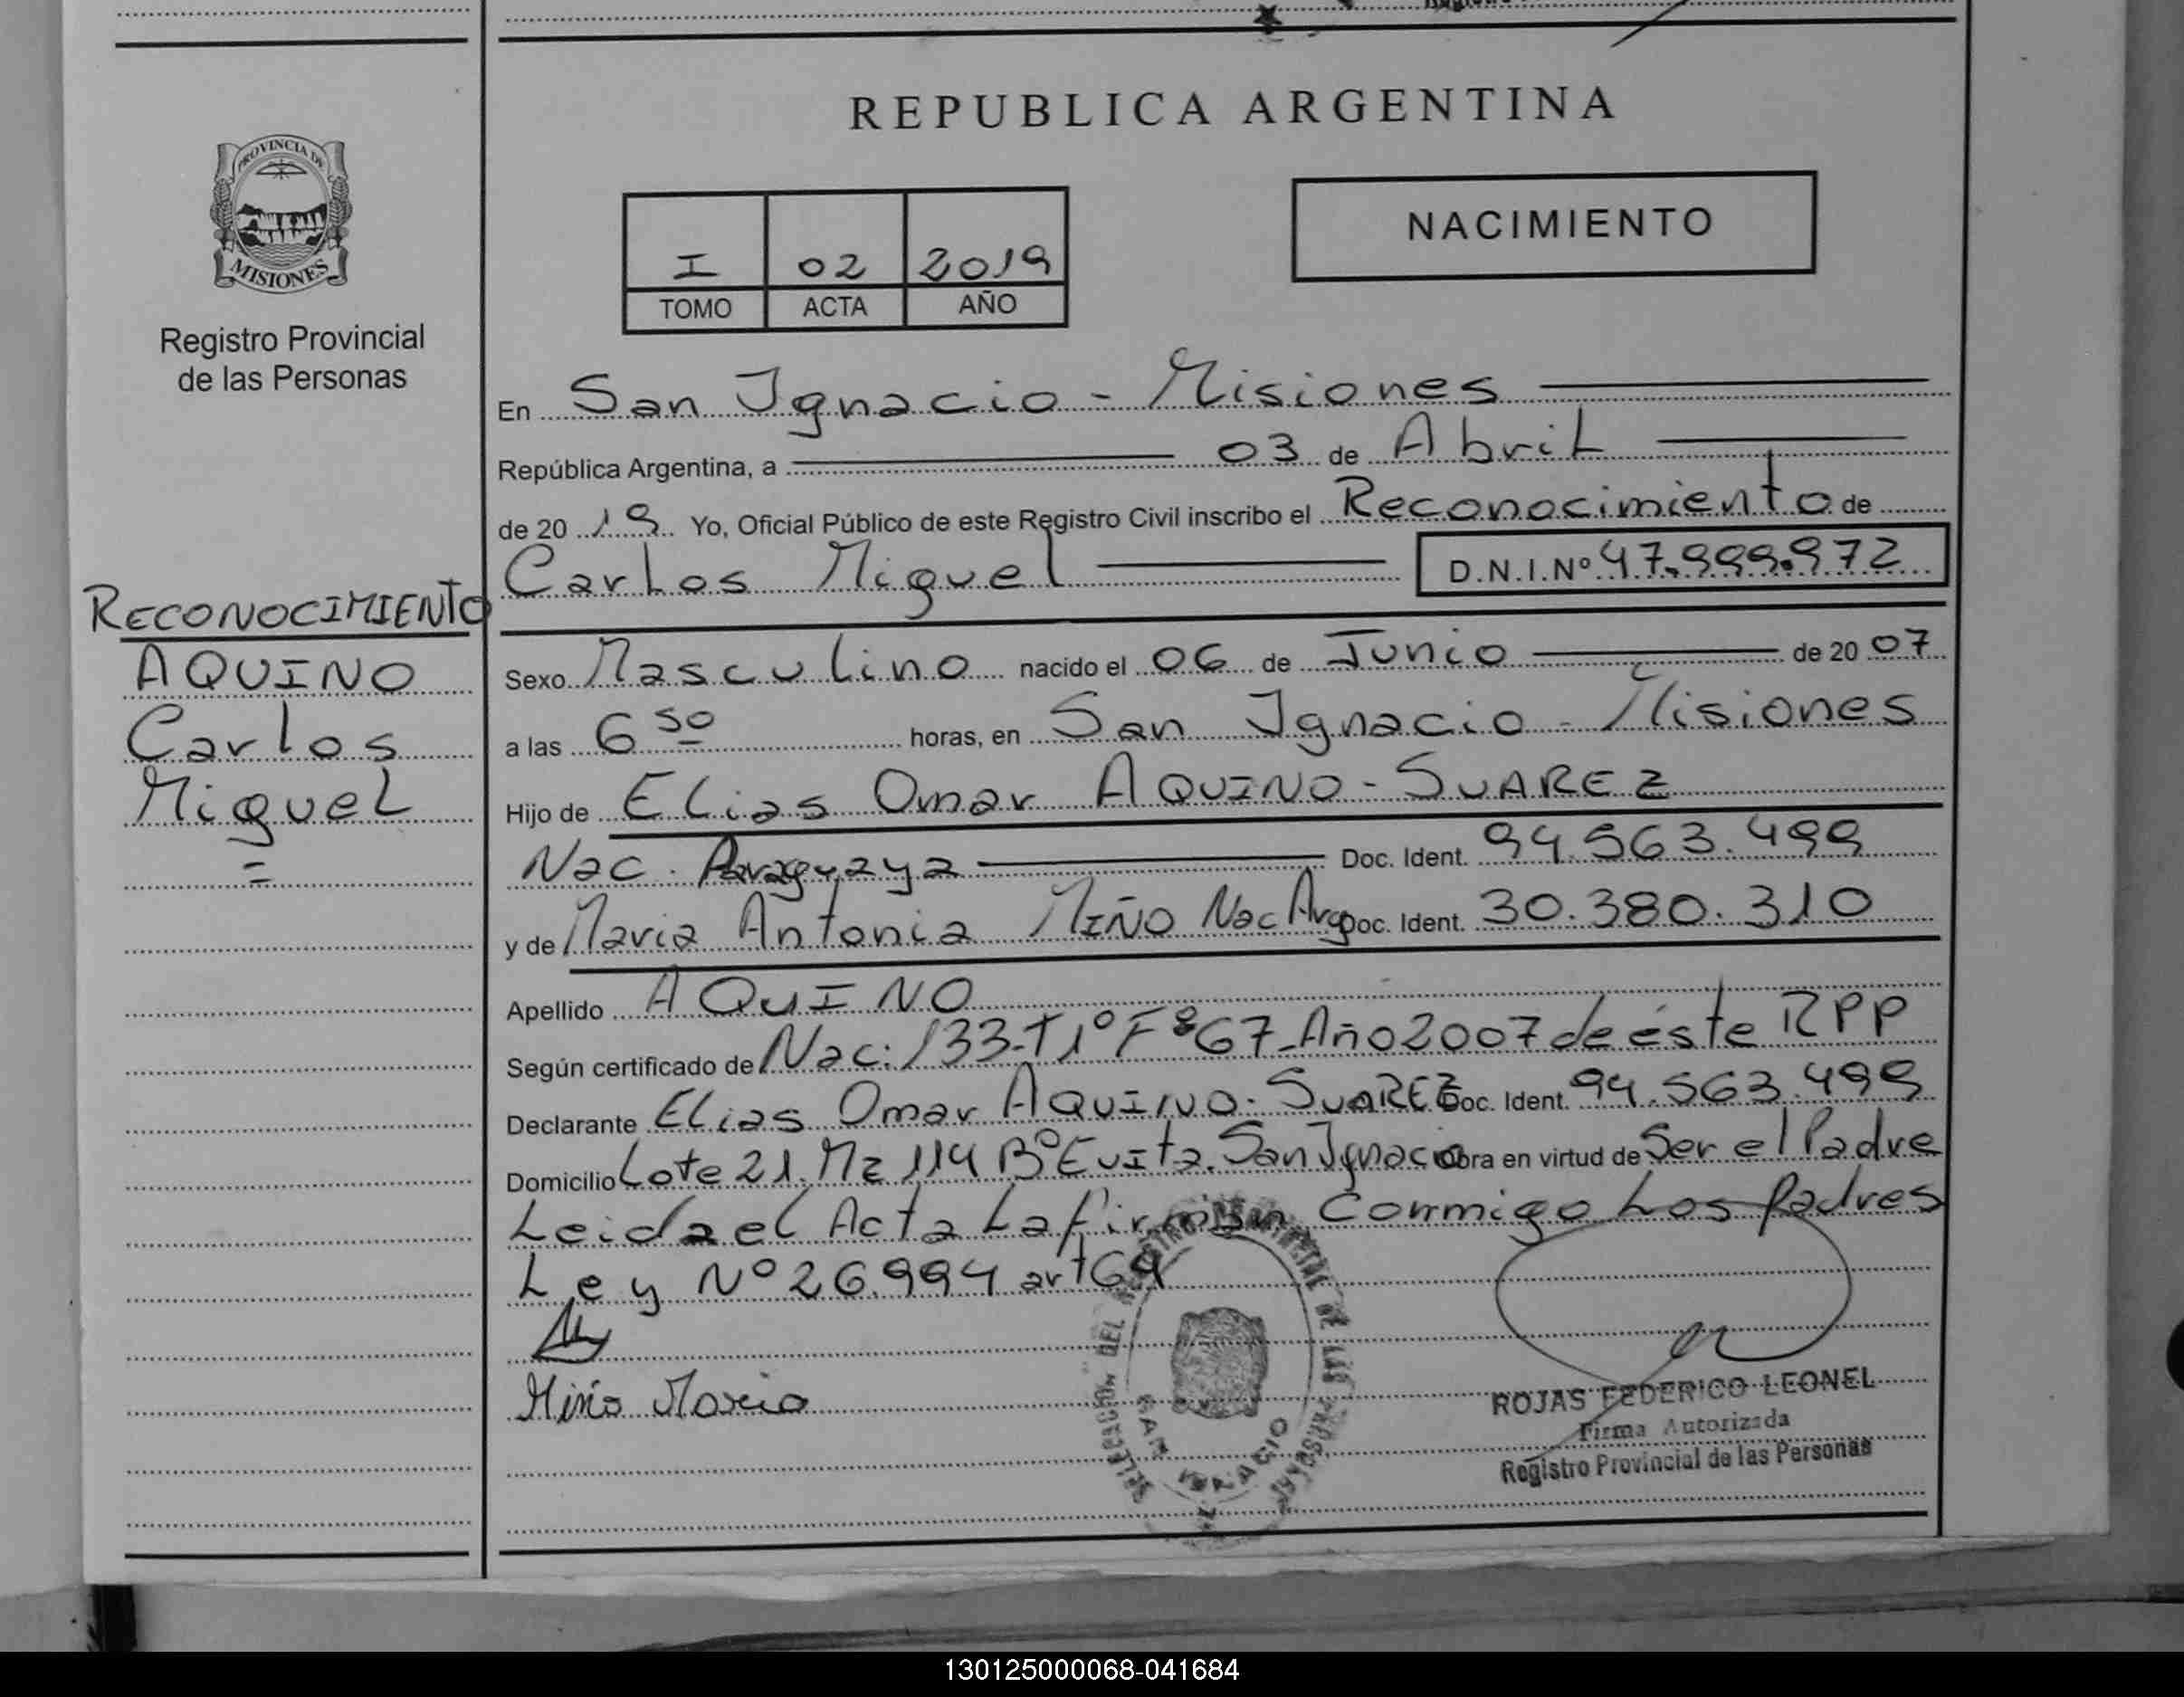 REPUBLICA ARGENTINA
PROVINCIA DE
MISIONES
Registro Provincial
de las Personas
NACIMIENTO
I 02 2019
TOMO ACTA AÑO
En San Ignacio - Misiones
República Argentina, a 03 de Abril
de 20 19 Yo, Oficial Público de este Registro Civil inscribo el Reconocimiento de
Carlos Miguel D.N.I.Nº 47.999.972
RECONOCIMIENTO
AQUINO
Carlos
Miguel
=
Sexo Masculino nacido el 06 de Junio de 20 07
a las 6 50 horas, en San Ignacio - Misiones
Hijo de Elias Omar AQUINO - SUAREZ
Nac. Paraguaya Doc. Ident. 94.563.499
y de Maria Antonia MIÑO Nac Arg Doc. Ident. 30.380.310
Apellido AQUINO
Según certificado de Nac: 133-T1º Fº67-Año 2007 de éste RPP
Declarante Elias Omar AQUINO - SUAREZ Doc. Ident. 94.563.499
Domicilio Lote 21. Mz 114 Bº Evita. San Ignacio obra en virtud de Ser el Padre
Leida el Acta La firman Conmigo Los Padres
Ley Nº 26.994 art 64
Miño Maria
DEL REGISTRO PROVINCIAL DE LAS PERSONAS
SAN IGNACIO
ROJAS FEDERICO LEONEL
Firma Autorizada
Registro Provincial de las Personas
130125000068-041684